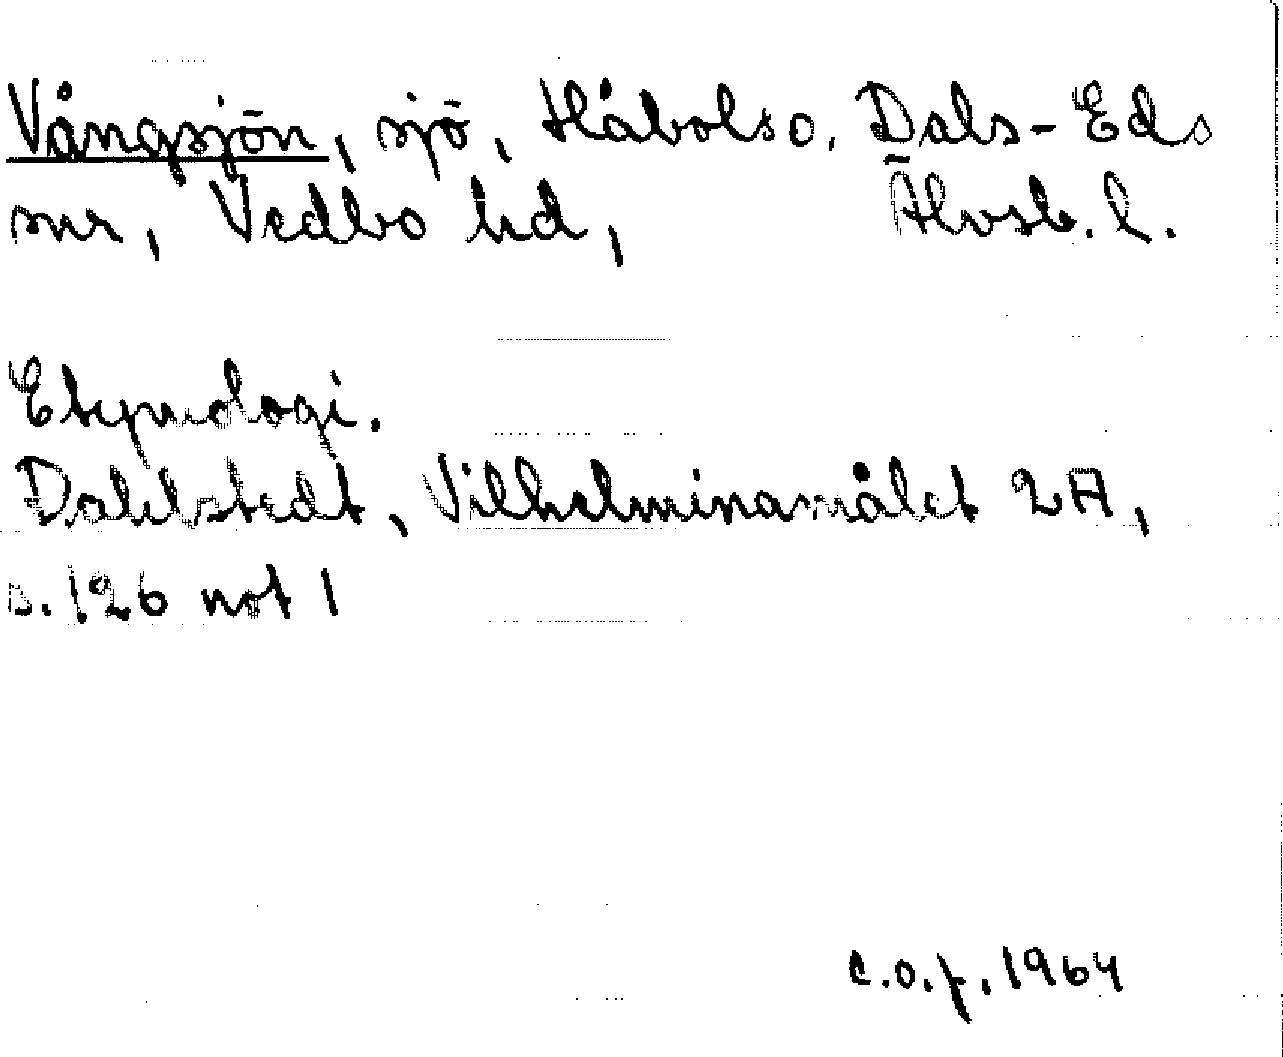 Vångsjön, sjö, Håbols o. Dals-Eds
snr, Vedbo hd, Älvsb. l.
Etymologi.
Dahlstedt, Vilhelminamålet 2A,
s. 126 not 1
c.o.f. 1964